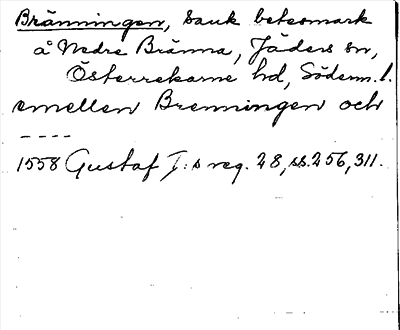 Bränningen, sank betesmark
å Nedre Bränna, Jäders sn,
Österrekarne hd, Söderm. l.
emellan Brenningen och
----
1558 Gustaf I:s reg. 28, ss. 256, 311.